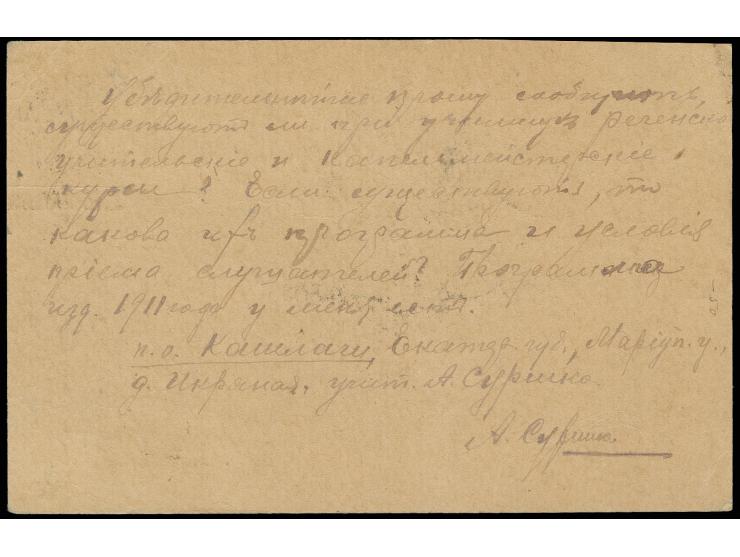 Убѣдительнѣйше прошу сообщить,
существуютъ ли при училищѣ регентско
учительскіе и капельмейстерскіе
курсы? Если существуютъ, то
какова ихъ программа и условія
пріема слушателей? Программа
изд. 1911 года у меня есть.
п. о. Кашлагу, Екатер. губ., Маріуп. у.,
д. Икряная, учит. А. Суршко.
А. Суршко.